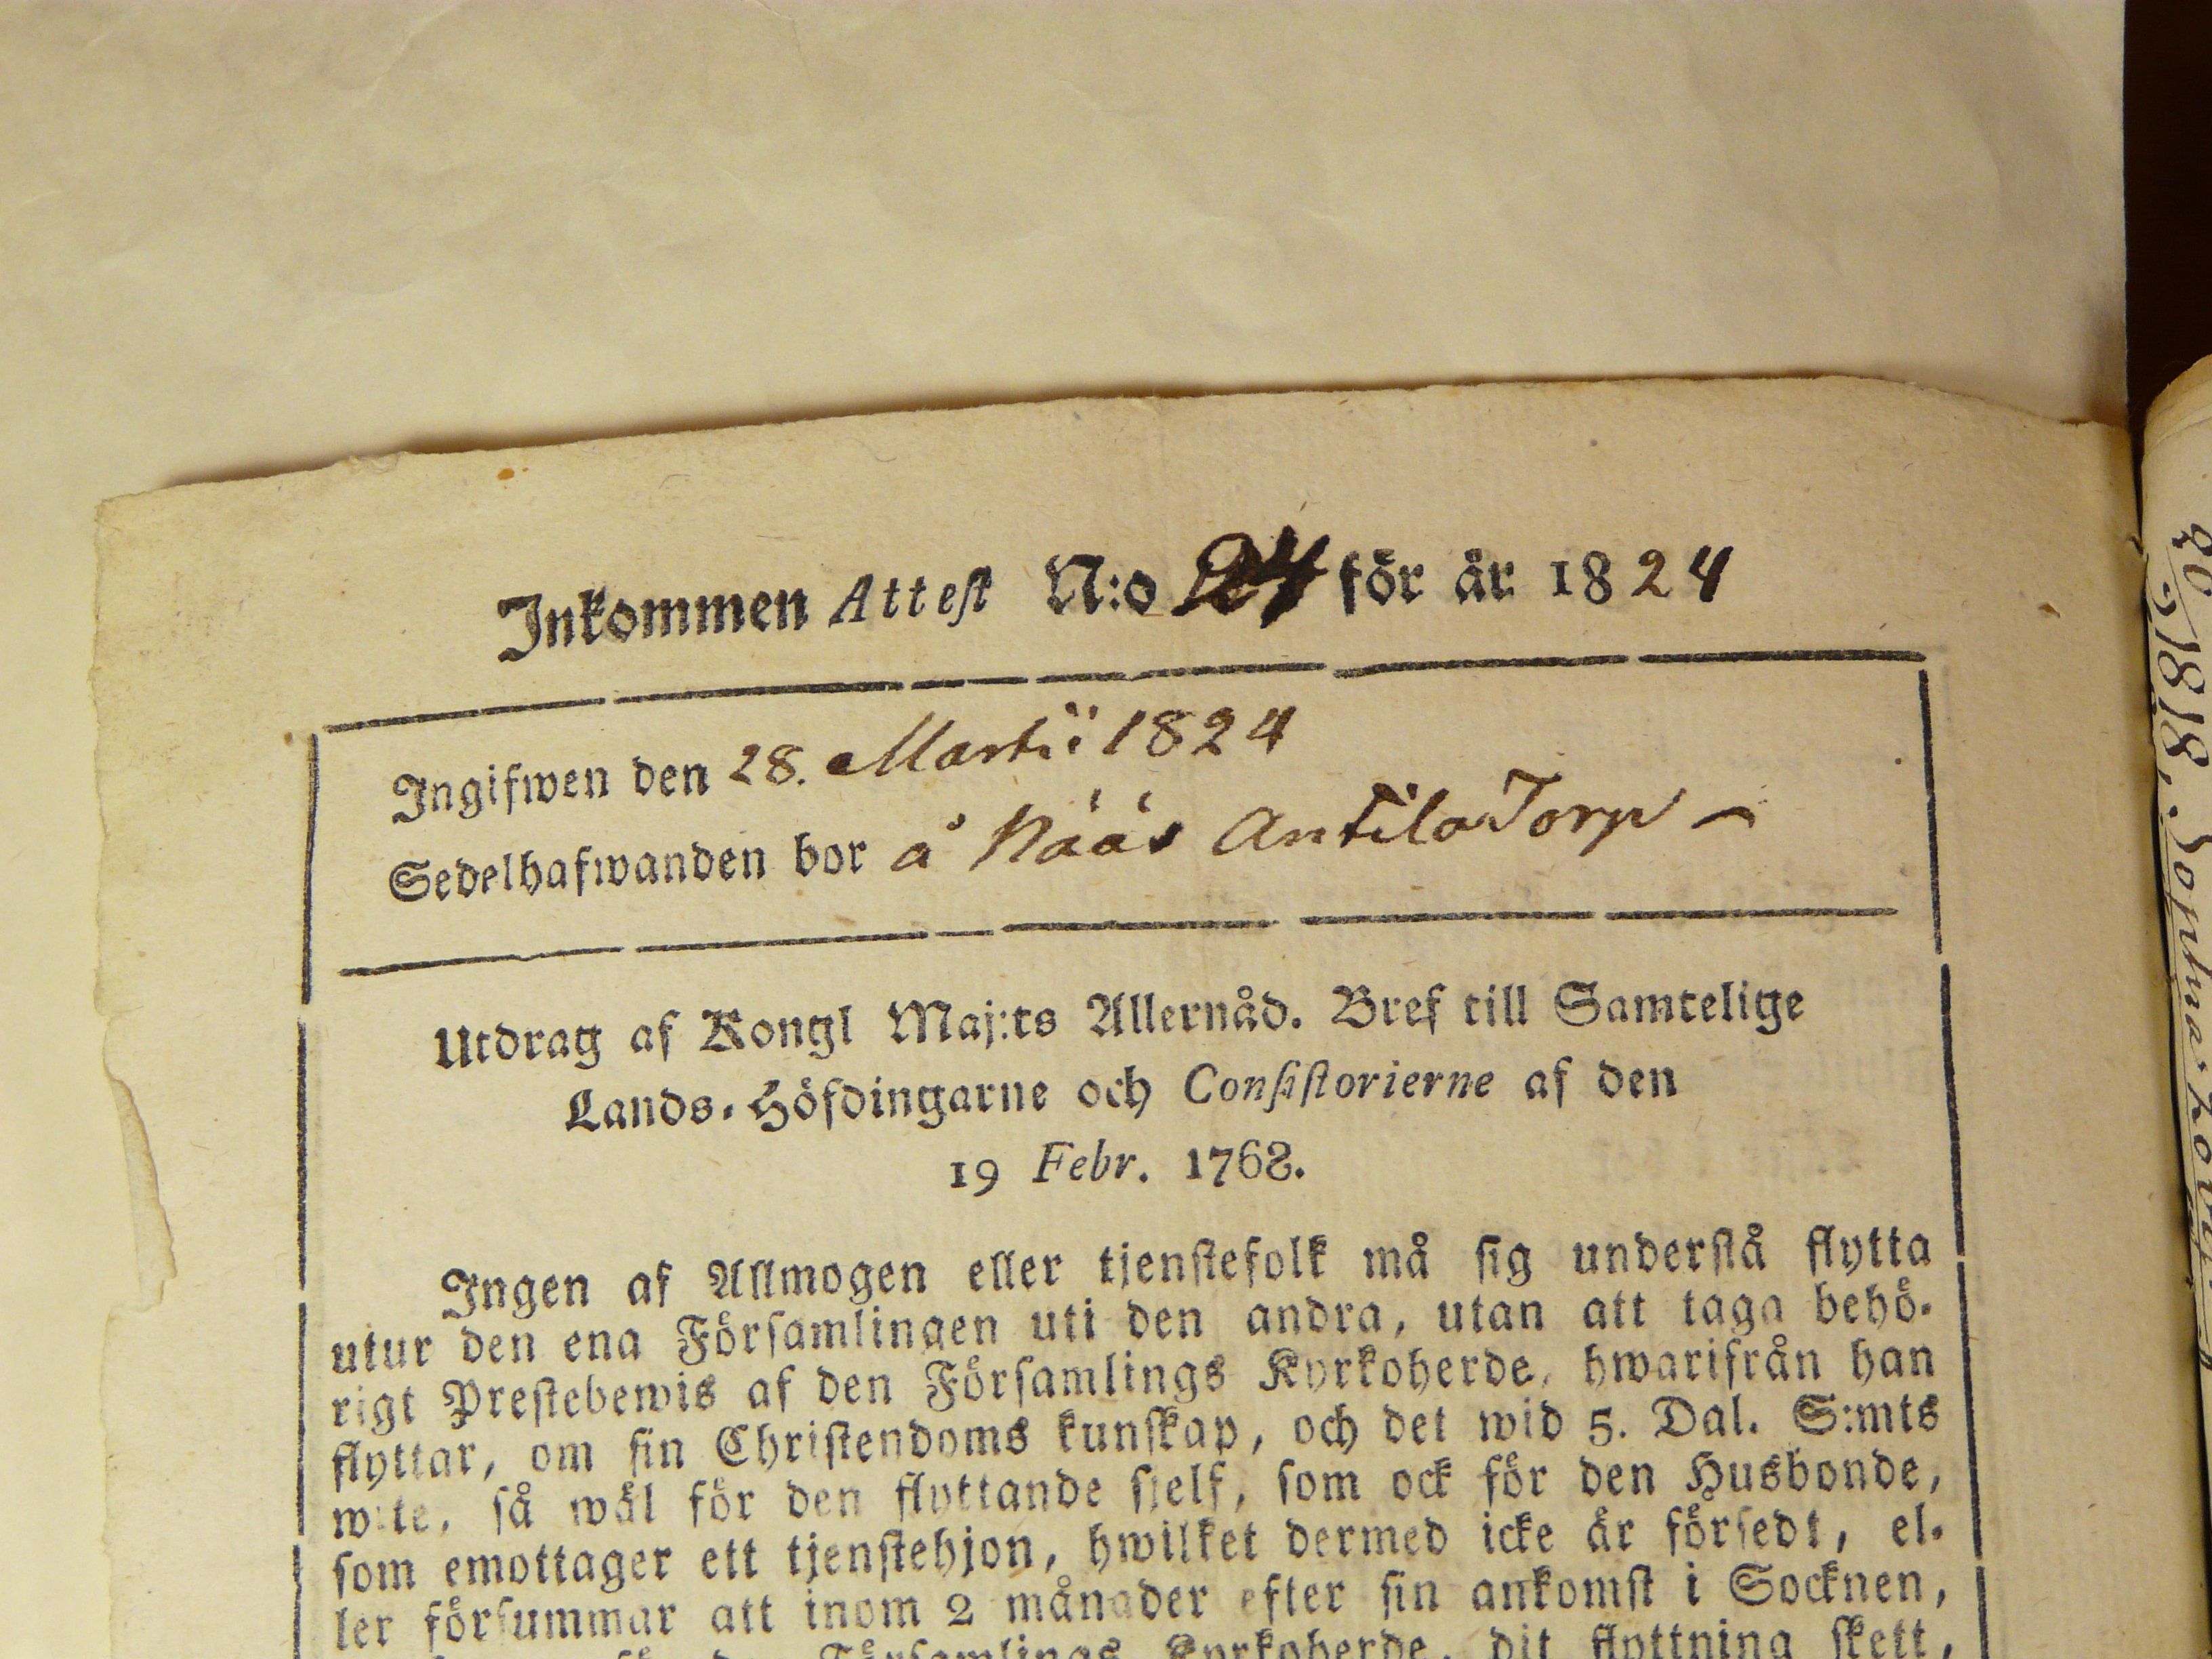 Inkommen Attest N:o 24 för år 1824
Ingifwen den 28. Martii 1824
Sedelhafwanden bor å Nääs Antila Torp
Utdrag af Kongl Maj:ts Allernåd. Bref till Samtelige
Lands-Höfdingarne och Consistorierne af den
19 Febr. 1768.
Ingen af Allmogen eller tjenstefolk må sig understå flytta
utur den ena Församlingen uti den andra, utan att taga behö-
rigt Prestebewis af den Församlings Kyrkoherde, hwarifrån han
flyttar, om sin Christendoms kunskap, och det wid 5. Dal. S:mts
wite, så wäl för den flyttande sjelf, som ock för den Husbonde,
som emottager ett tjenstehjon, hwilket dermed icke är försedt, el-
ler försummar att inom 2 månader efter sin ankomst i Socknen,
Församlings Kyrkoherde, dit flyttning skett,
1818.